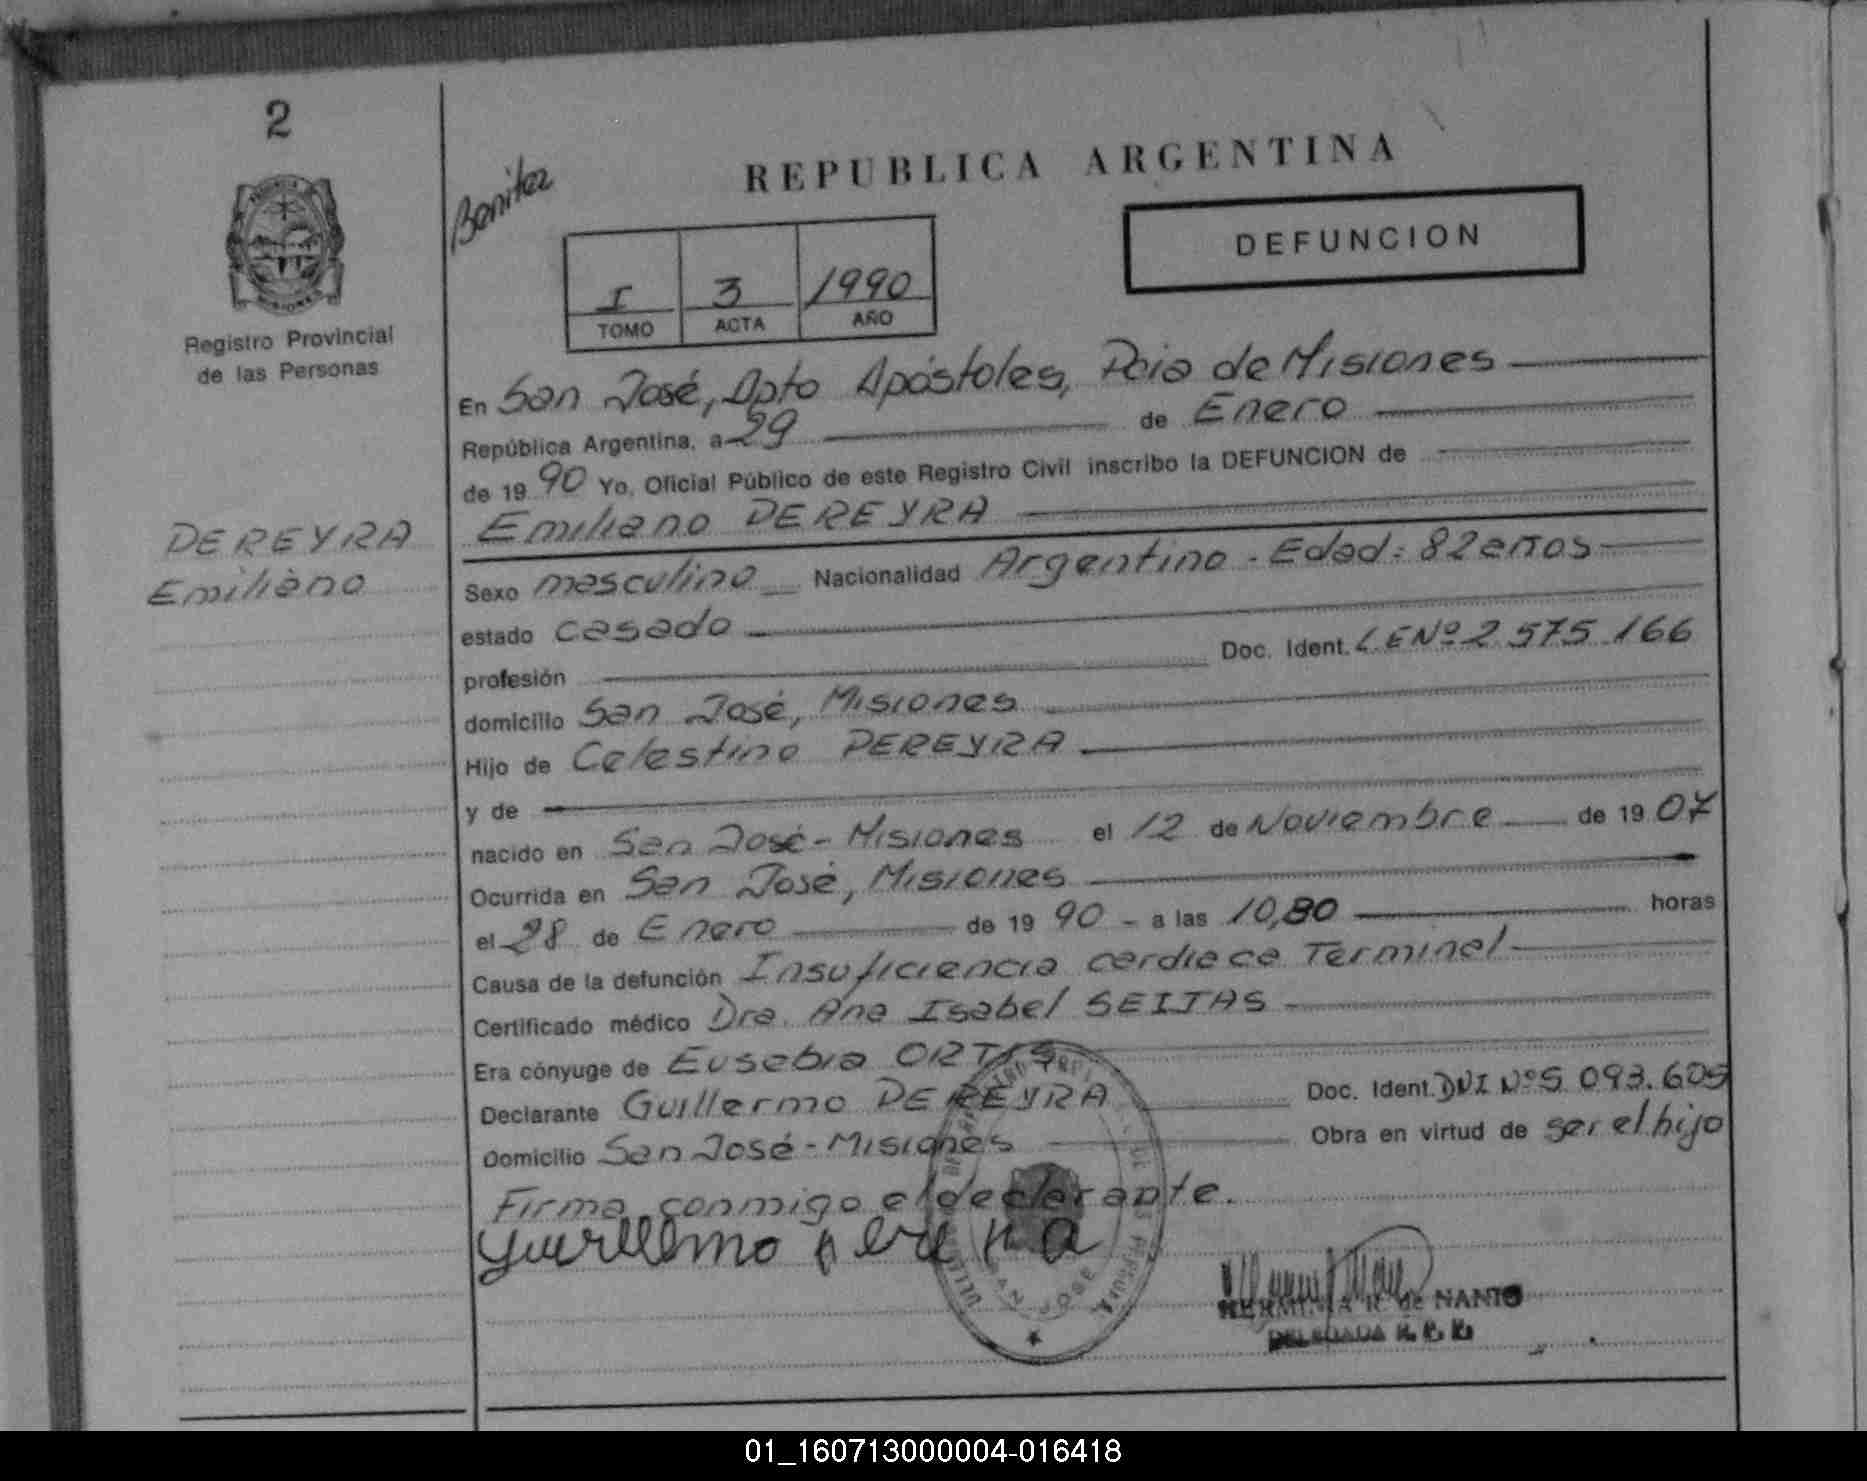 2
Registro Provincial
de las Personas
PEREYRA
Emiliano
Benitez
REPUBLICA ARGENTINA
DEFUNCION
I 3 1990
TOMO ACTA AÑO
En San José, Dpto Apóstoles, Pcia de Misiones
República Argentina, a 29 de Enero
de 19 90 Yo, Oficial Público de este Registro Civil inscribo la DEFUNCION de
Emiliano PEREYRA
Sexo masculino Nacionalidad Argentino - Edad: 82 años
estado casado
profesión Doc. Ident. L.E Nº 2.575.166
domicilio San José, Misiones
Hijo de Celestino PEREYRA
y de
nacido en San José - Misiones el 12 de Noviembre de 19 07
Ocurrida en San José, Misiones
el 28 de Enero de 19 90 - a las 10,30 horas
Causa de la defunción Insuficiencia cardiaca Terminal
Certificado médico Dra. Ana Isabel SEIJAS
Era cónyuge de Eusebia ORTIS
Declarante Guillermo PEREYRA Doc. Ident. DNI Nº 5.093.605
Domicilio San José - Misiones Obra en virtud de ser el hijo
Firma conmigo el declarante.
Guillermo
HERMINIA R. de NANTO
DELEGADA R. P. P.
01_160713000004-016418